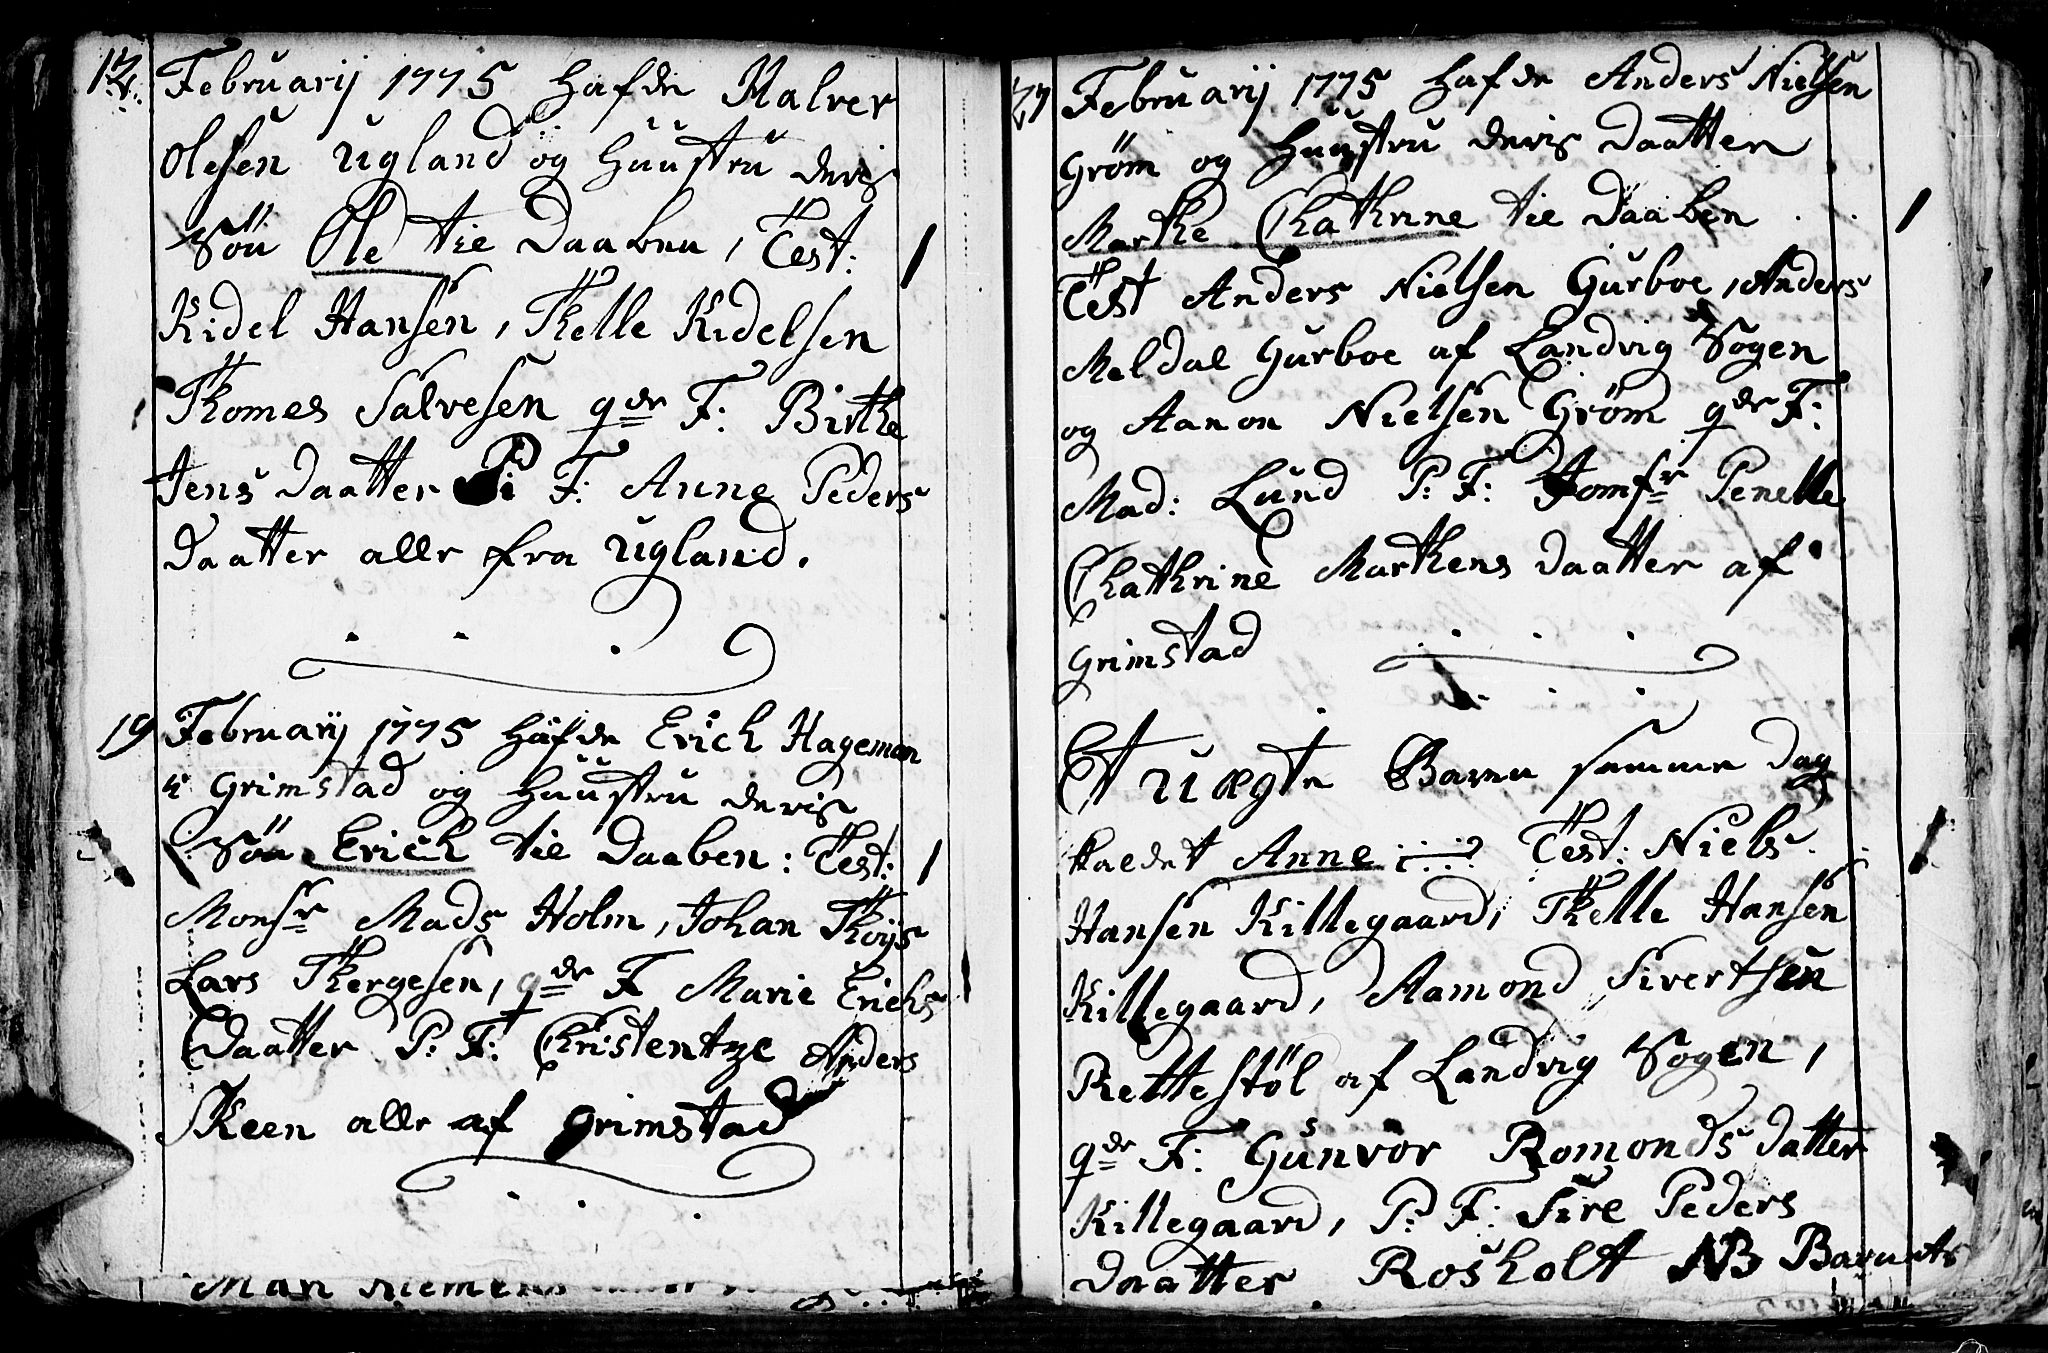 12. Februarij 1775 hafde Halver
Olesen Ugland og Huustru deris
Sön Ole til Daaben, Test:
Kidel Hansen, Thelle Kidelsen
Thomes Salvesen gde F: Birthe
Jens daatter P: F: Anne Peders
daatter alle fra Ugland.
19 Februarij 1775 hafde Erich Hageman
i Grimstad og Huustru deris
Sön Erich til Daaben: Test:
Monsr Mads Holm, Johan Thÿs
Lars Thergesen, gde F Marie Erichs
Daatter P: F: Christentze Anders
Skeen alle af Grimstad
Februarij 1775 hafde Anders Nielsen
Grøm og Huustru deris Daatter
Marthe Chathrine til Daaben
Test Anders Nielsen Gurboe, Anders
Meldal Gurboe af Landvig Sogen
og Aanon Nielsen Grøm gde F:
Mad: Lund P: F: Jomfr Penelle
Chathrine Marthens Daatter af
Grimstad
Et Uægte Barn samme Dag
kaldet Anne Test: Niels
Hansen Killegaard, Thelle Hansen
Killegaard, Aamond Sivertsen
Rettestöl af Landvig Sogen,
gde F: Gunvor Romonds datter
Killegaard, P: F: Sire Peders
daatter Rosholt NB Barnets